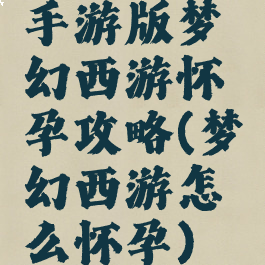 手游版梦
幻西游怀
孕攻略(梦
幻西游怎
么怀孕)